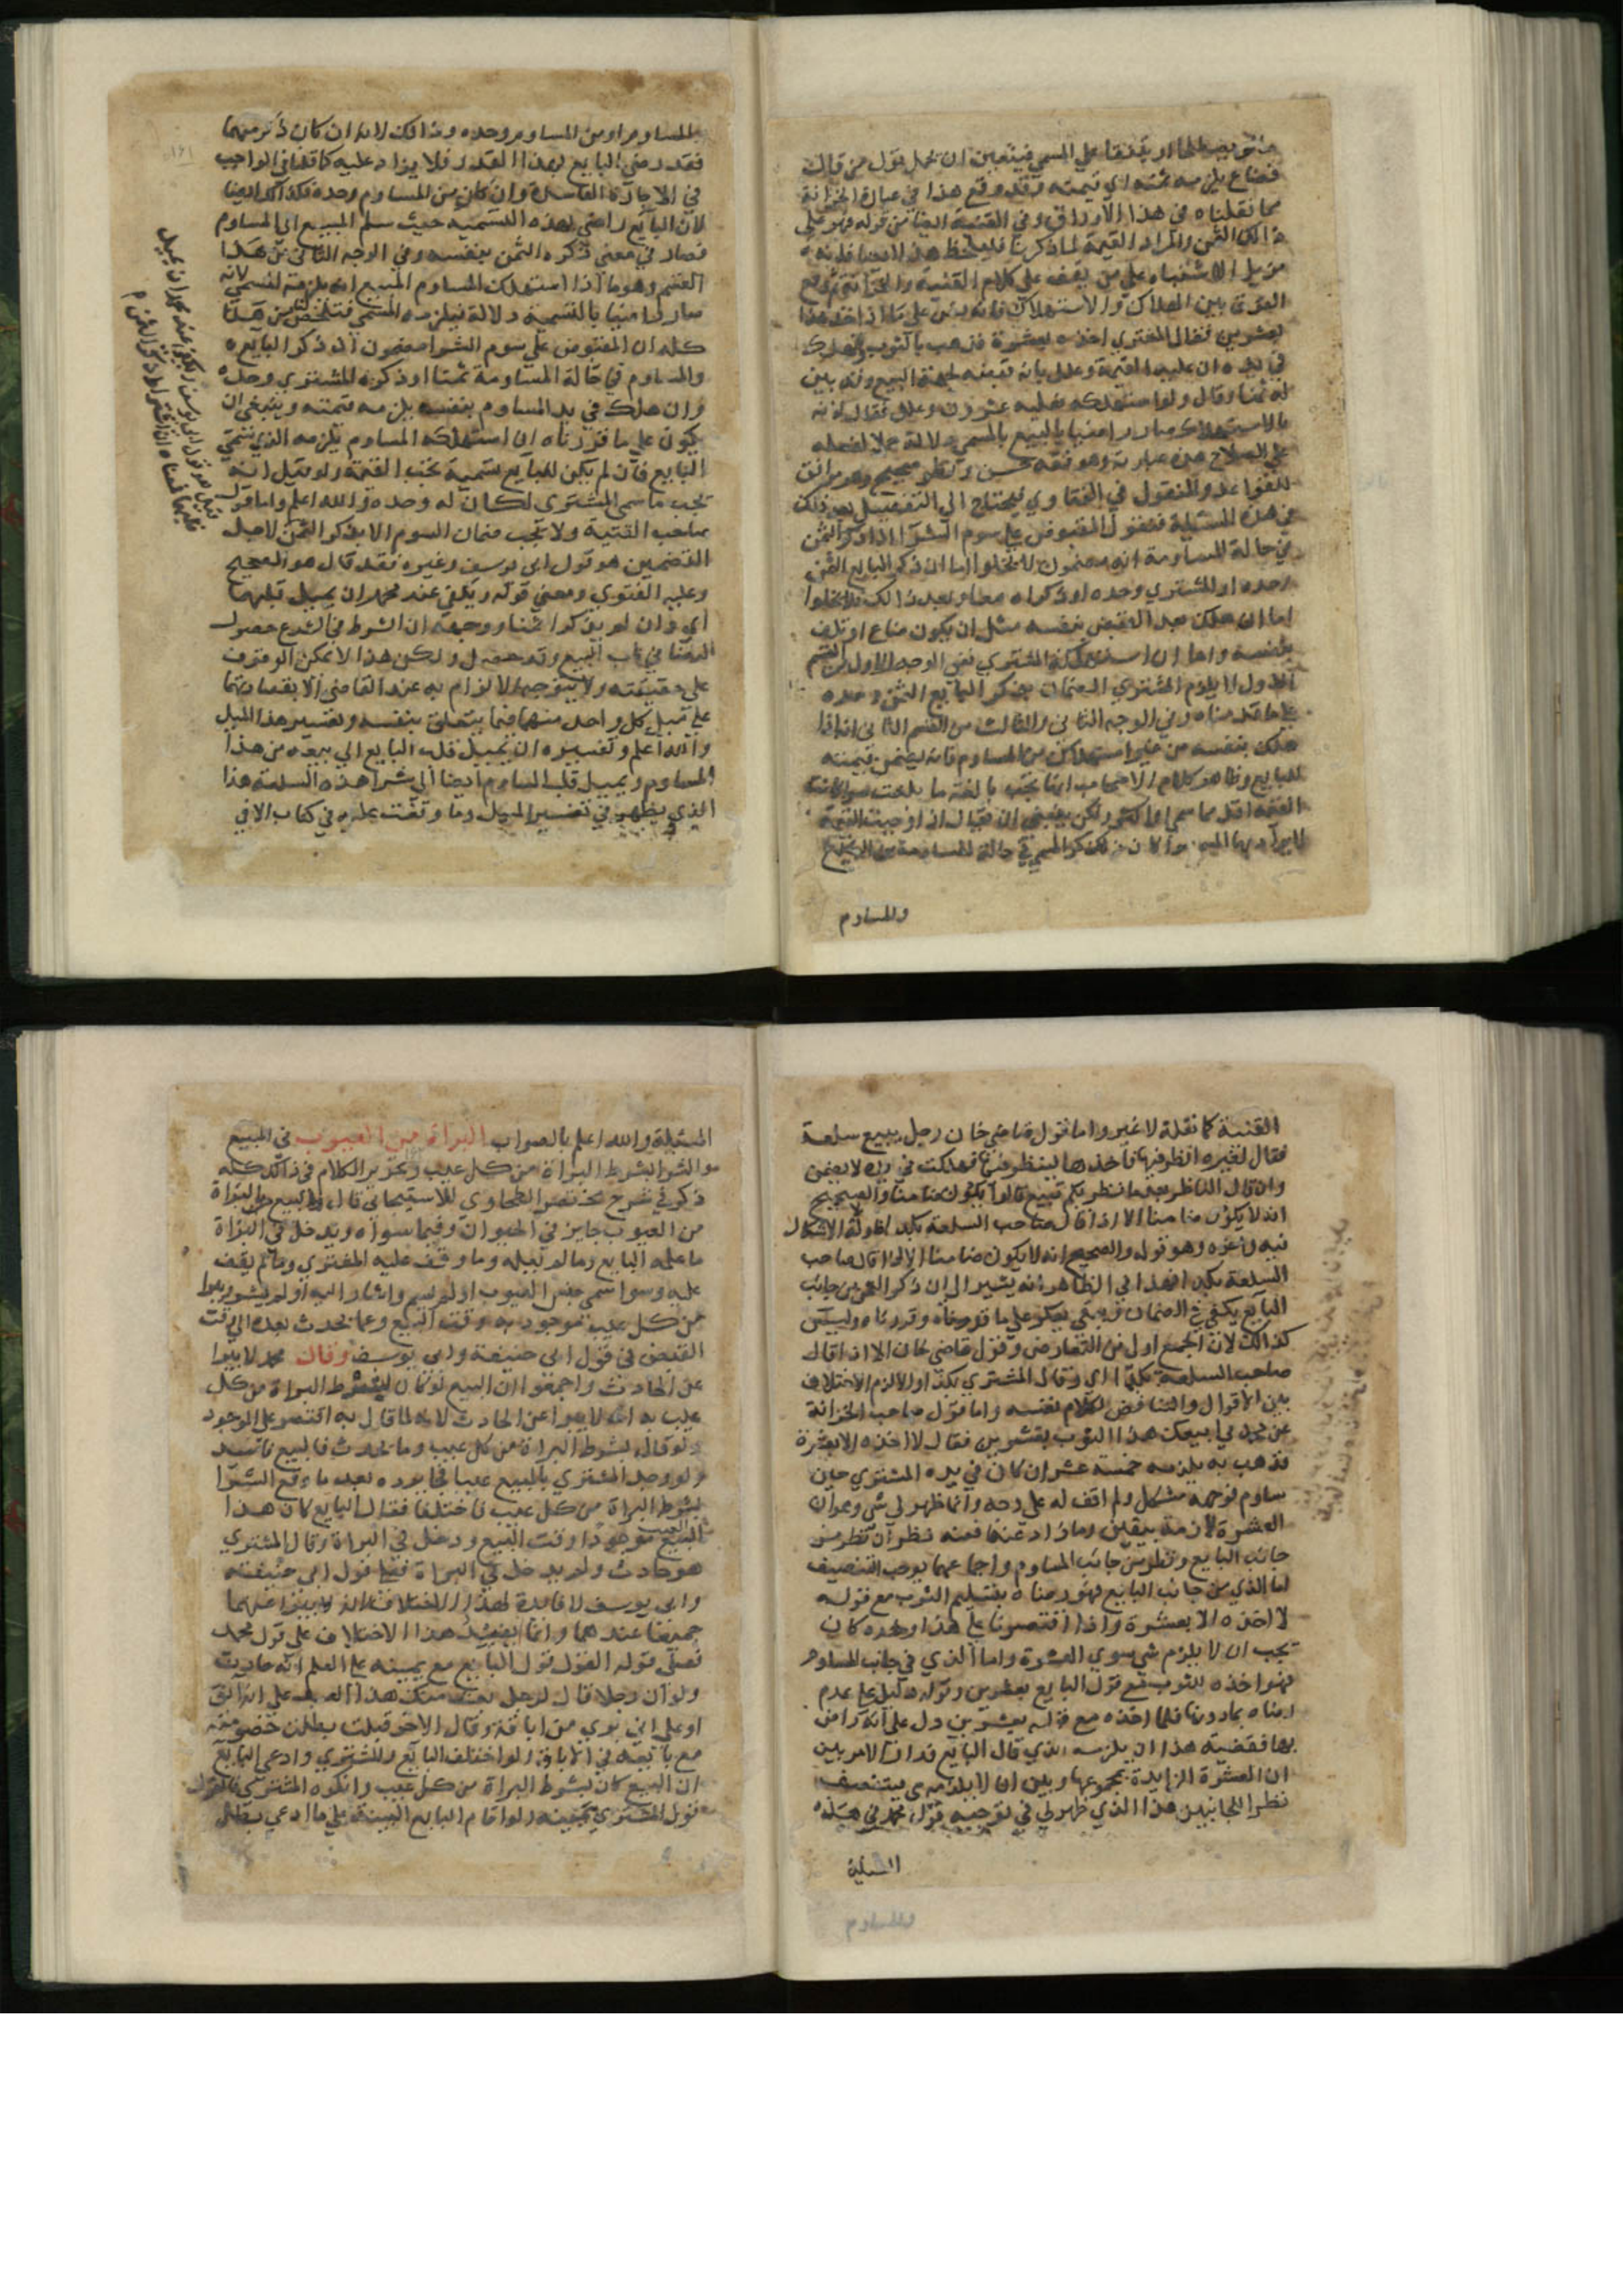 فضاع يلزمه ثمنه اي قيمته وقد وقع هذا في عبارة الخزانة
مما نقلناه في هذا الاوراق وفي القنية ايضا من قوله فهو على
ذالك الثمن والمراد القيمة لما ذكرنا فليحفظ هذا
مزيل الاشتباه على من يقف على كلام القنية والخزانة
الفرق بين الهلاك والاستهلاك فانه
بعشرين فقال المشتري اخذه بعشرة فذهب بالثوب
في يده ان عليه القيمة وعلل بانه قبضه لجهة البيع وقد بين
له ثمنا وقال ولو استهلكه فعليه عشرون وعلل فقال لانه
بالاستهلاك صار راضيا بالبيع بالمسمى دلالة حملا لفعله
على الصلاح هذه عبارته وهو فقه حسن ونظر صحيح وهو موافق
للقواعد والمنقول في الفتاوي يحتاج الى التفصيل بعد ذلك
في هذه المسئلة فنقول المقبوض على سوم الشرا اذا ذكر الثمن
في حالة المساومة انه مضمون لا يخلوا اما ان ذكر البايع الثمن
وحده او المشتري وحده او ذكراه معا وبعد ذالك فلا يخلوا
اما ان هلك بعد القبض بنفسه مثل ان يكون ضاع او تلف
بنفسه واما ان استهلكه المشتري ففي الوجه الاول من القسم
الاول لا يلزم المشتري الضمان بذكر البايع الثمن وحده
على ما قدمناه وفي الوجه الثاني والثالث من القسم الثاني انه اذا
هلك بنفسه من غير استهلاك من المساوم فانه يضمن قيمته
للبايع وظاهر كلام الاصحاب انها تجب بالغة ما بلغت سوا كانت
القيمة اقل مما سمى او اكثر ولكن ينبغي ان يقال اذا اوجبنا القيمة
لا يزاد بها المسمى سوا كان ذلك ذكر المسمى في حالة المساومة من البايع
والمساوم
والمساوم او من المساوم وحده وذالك لانه ان كان ذكر منهما
فقد رضى البايع بهذا القدر فلا يزاد عليه كما قلنا في الواجب
في الاجارة الفاسدة وان كان من المساوم وحده فكذالك ايضا
لان البايع راضي بهذه التسمية حيث سلم المبيع الى المساوم
فصار في معنى ذكره الثمن بنفسه وفي الوجه الثاني من هذا
القسم وهو ما اذا استهلك المساوم المبيع انه يلزمه المسمى لانه
صار راضيا بالتسمية دلالة فيلزمه المسمى فتلخص من هذا
كله ان المقبوض على سوم الشرا مضمون اذا ذكر البايع
والمساوم في حالة المساومة ثمنا او ذكره المشتري وحده
وان هلك في يد المساوم بنفسه يلزمه قيمته وينبغي ان
يكون على ما قررناه ان استهلكه المساوم يلزمه الذي سمى
البايع فان لم يكن للبايع تسمية تجب القيمة ولو قيل انه
تجب ما سمى المشتري لكان له وجه والله اعلم واما قول
صاحب القنية ولا تجب ضمان السوم الا بذكر الثمن لاجل
التضمين هو قول ابي يوسف وغيره فقد قال هو الصحيح
وعليه الفتوى ومعنى قوله ويكفي عند محمد ان يميل قلبهما
اي وان لم يذكرا ثمنا ووجهه ان الشرط في الشرع حصول
الرضا في باب البيع وقد حصل ولكن هذا لا يمكن الوقوف
على حقيقته ولا يتوجه الالزام به عند القاضي الا بقصادقهما
على ميل كل واحد منهما فيما يتعلق بنفسه وتفسير هذا الميل
والله اعلم وتفسيره ان يميل قلب البايع الى بيعه من هذا
المساوم ويميل قلب المساوم ايضا الى شرا هذه السلعة هذا
الذي يظهر في تفسير الميل وما وقفت عليه في كتاب الا في
القنية كما نقلته لا غير واما قول قاضي خان رجل يبيع سلعة
فقال لغيره انظر فيها فاخذها لينظر فيها فهلكت في يده لا يضمن
وان قال الناظر بعد ما نظر بكم تبيع قالوا يكون ضامنا والصحيح
انه لا يكون ضامنا الا اذا قال صاحب السلعة بكذا
وهو قوله والصحيح انه لا يكون ضامنا الا اذا قال صاحب
السلعة بكذا فهذا في الظاهر انه يشير الى ان ذكر الثمن من جانب
البايع يكفي في الضمان فيبقى يعكر على ما قدمناه وقررناه وليس
كذالك لان الجمع اولى من التعارض وقول قاضي خان الا اذا قال
صاحب السلعة بكذا اي وقال المشتري بكذا والا لزم الاختلاف
بين الاقوال والتناقض لكلام نفسه واما قول صاحب الخزانة
عن محمد في ابيعك هذا الثوب بعشرين فقال لا اخذه الا بعشرة
فذهب به يلزمه خمسة عشر ان كان في يده المشتري حين
ساوم فوجهه مشكل ولم اقف له على وجه وانما ظهر لي شي وهو ان
العشرة لازمة بيقين وما زاد عنها فمنه نظران نظر من
جانب البايع ونظر من جانب المساوم واجتماعهما يوجب التنصيف
اما الذي من جانب البايع فهو رضاه بتسليم الثوب مع قوله
لا اخذه الا بعشرة واذا اقتصرنا على هذا وحده كان
يجب ان لا يلزم شي سوى العشرة واما الذي في جانب المساوم
فهو اخذه للثوب مع قول البايع بعشرين وقوله دليل على عدم
رضاه بما دونها فلما اخذه مع قوله بعشرين دل على انه راض
بها فقضية هذا ان يلزمه الذي قال البايع فدار الامر بين
ان العشرة الزايدة بمجموعها وبين ان لا يلزمه شي فيتنصف
نظرا للجانبين هذا الذي ظهر لي في توجيه قول محمد في هذه
المسئلة
المسئلة والله اعلم بالصواب البراة من العيوب في البيع
والشرا بشرط البراة من كل عيب وتحرير الكلام في ذالك كله
ذكر في شرح مختصر الطحاوي للاسبيجابي قال والبيع بالبراة
من العيوب جايز في الحيوان وفيما سواه ويدخل في البراة
ما علمه البايع وما لم يعلمه وما وقف عليه المشتري وما لم يقف
عليه وسوا سمى جنس العيوب او لم يسم واشار اليه او لم يشر ويبرا
من كل عيب موجود به وقت البيع وعما يحدث بعده الى وقت
القبض في قول ابي حنيفة وابي يوسف وقال محمد لا يبرا
عن الحادث واجمعوا ان البيع لو كان بشرط البراة من كل
عيب به انه لا يبرا عن الحادث لانه لما قال به اقتصر على الموجود
ولو قال بشرط البراة من كل عيب وما يحدث فالبيع فاسد
ولو وجد المشتري بالمبيع عيبا فجا يرده بعد ما وقع الشرا
بشرط البراة من كل عيب فاختلفا فقال البايع كان هذا
العيب موجودا وقت البيع ودخل في البراة وقال المشتري
هو حادث ولم يدخل في البراة فعلى قول ابي حنيفة
وابي يوسف لا فايدة لهذا الاختلاف لانه يبرا عنهما
جميعا عندهما وانما يفيد هذا الاختلاف على قول محمد
فعلى قوله القول قول البايع مع يمينه على العلم انه حادث
ولو ان رجلا قال لرجل بعت منك هذا العبد على انه ابق
او على اني بري من اباقه وقال الاخر قبلت بطلت خصومته
مع بايعه في الاباق ولو اختلف البايع والمشتري وادعى البايع
ان البيع كان بشرط البراة من كل عيب وانكره المشتري فالقول
قول المشتري بيمينه ولو اقام البايع البينة على ما ادعى بطل